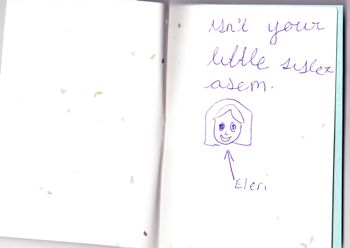 isn't your
little sister
asem.
Eleri